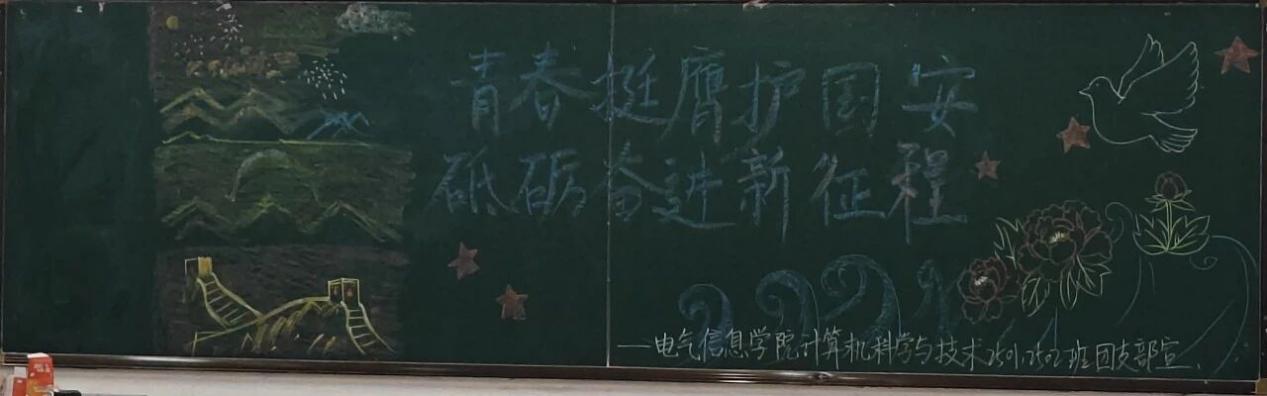 青春挺膺护国安
砥砺奋进新征程
——电气信息学院计算机科学与技术2501.2502班团支部宣